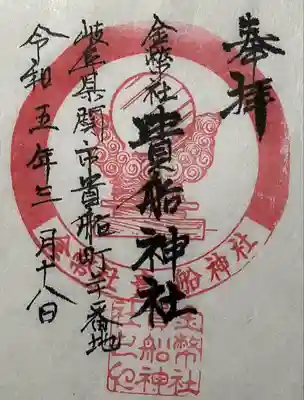 奉拝
金幣社 貴船神社
岐阜県關市貴船町十番地
令和五年三月十八日
金幣社貴船神社
金幣社
貴船神
社之印